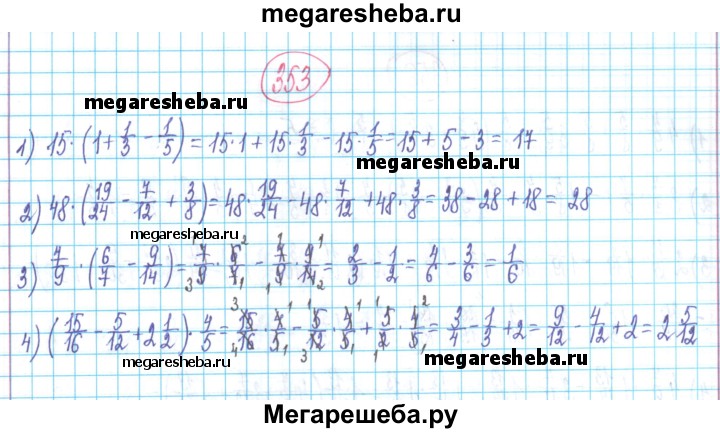 megaresheba.ru
353
megaresheba.ru
1) 15·(1+1/3-1/5)=15·1+15·1/3-15·1/5=15+5-3=17
megaresheba.ru
2) 48·(19/24-7/12+3/8)=48·19/24-48·7/12+48·3/8=38-28+18=28
megaresheba.ru
3) 7/9·(6/7-9/14)=7/9·6/7-7/9·9/14=2/3-1/2=4/6-3/6=1/6
4) (15/16-5/12+2 1/2)·4/5=15/16·4/5-5/12·4/5+5/2·4/5=3/4-1/3+2=9/12-4/12+2=2 5/12
megaresheba.ru megaresheba.ru
Мегарешеба.ру